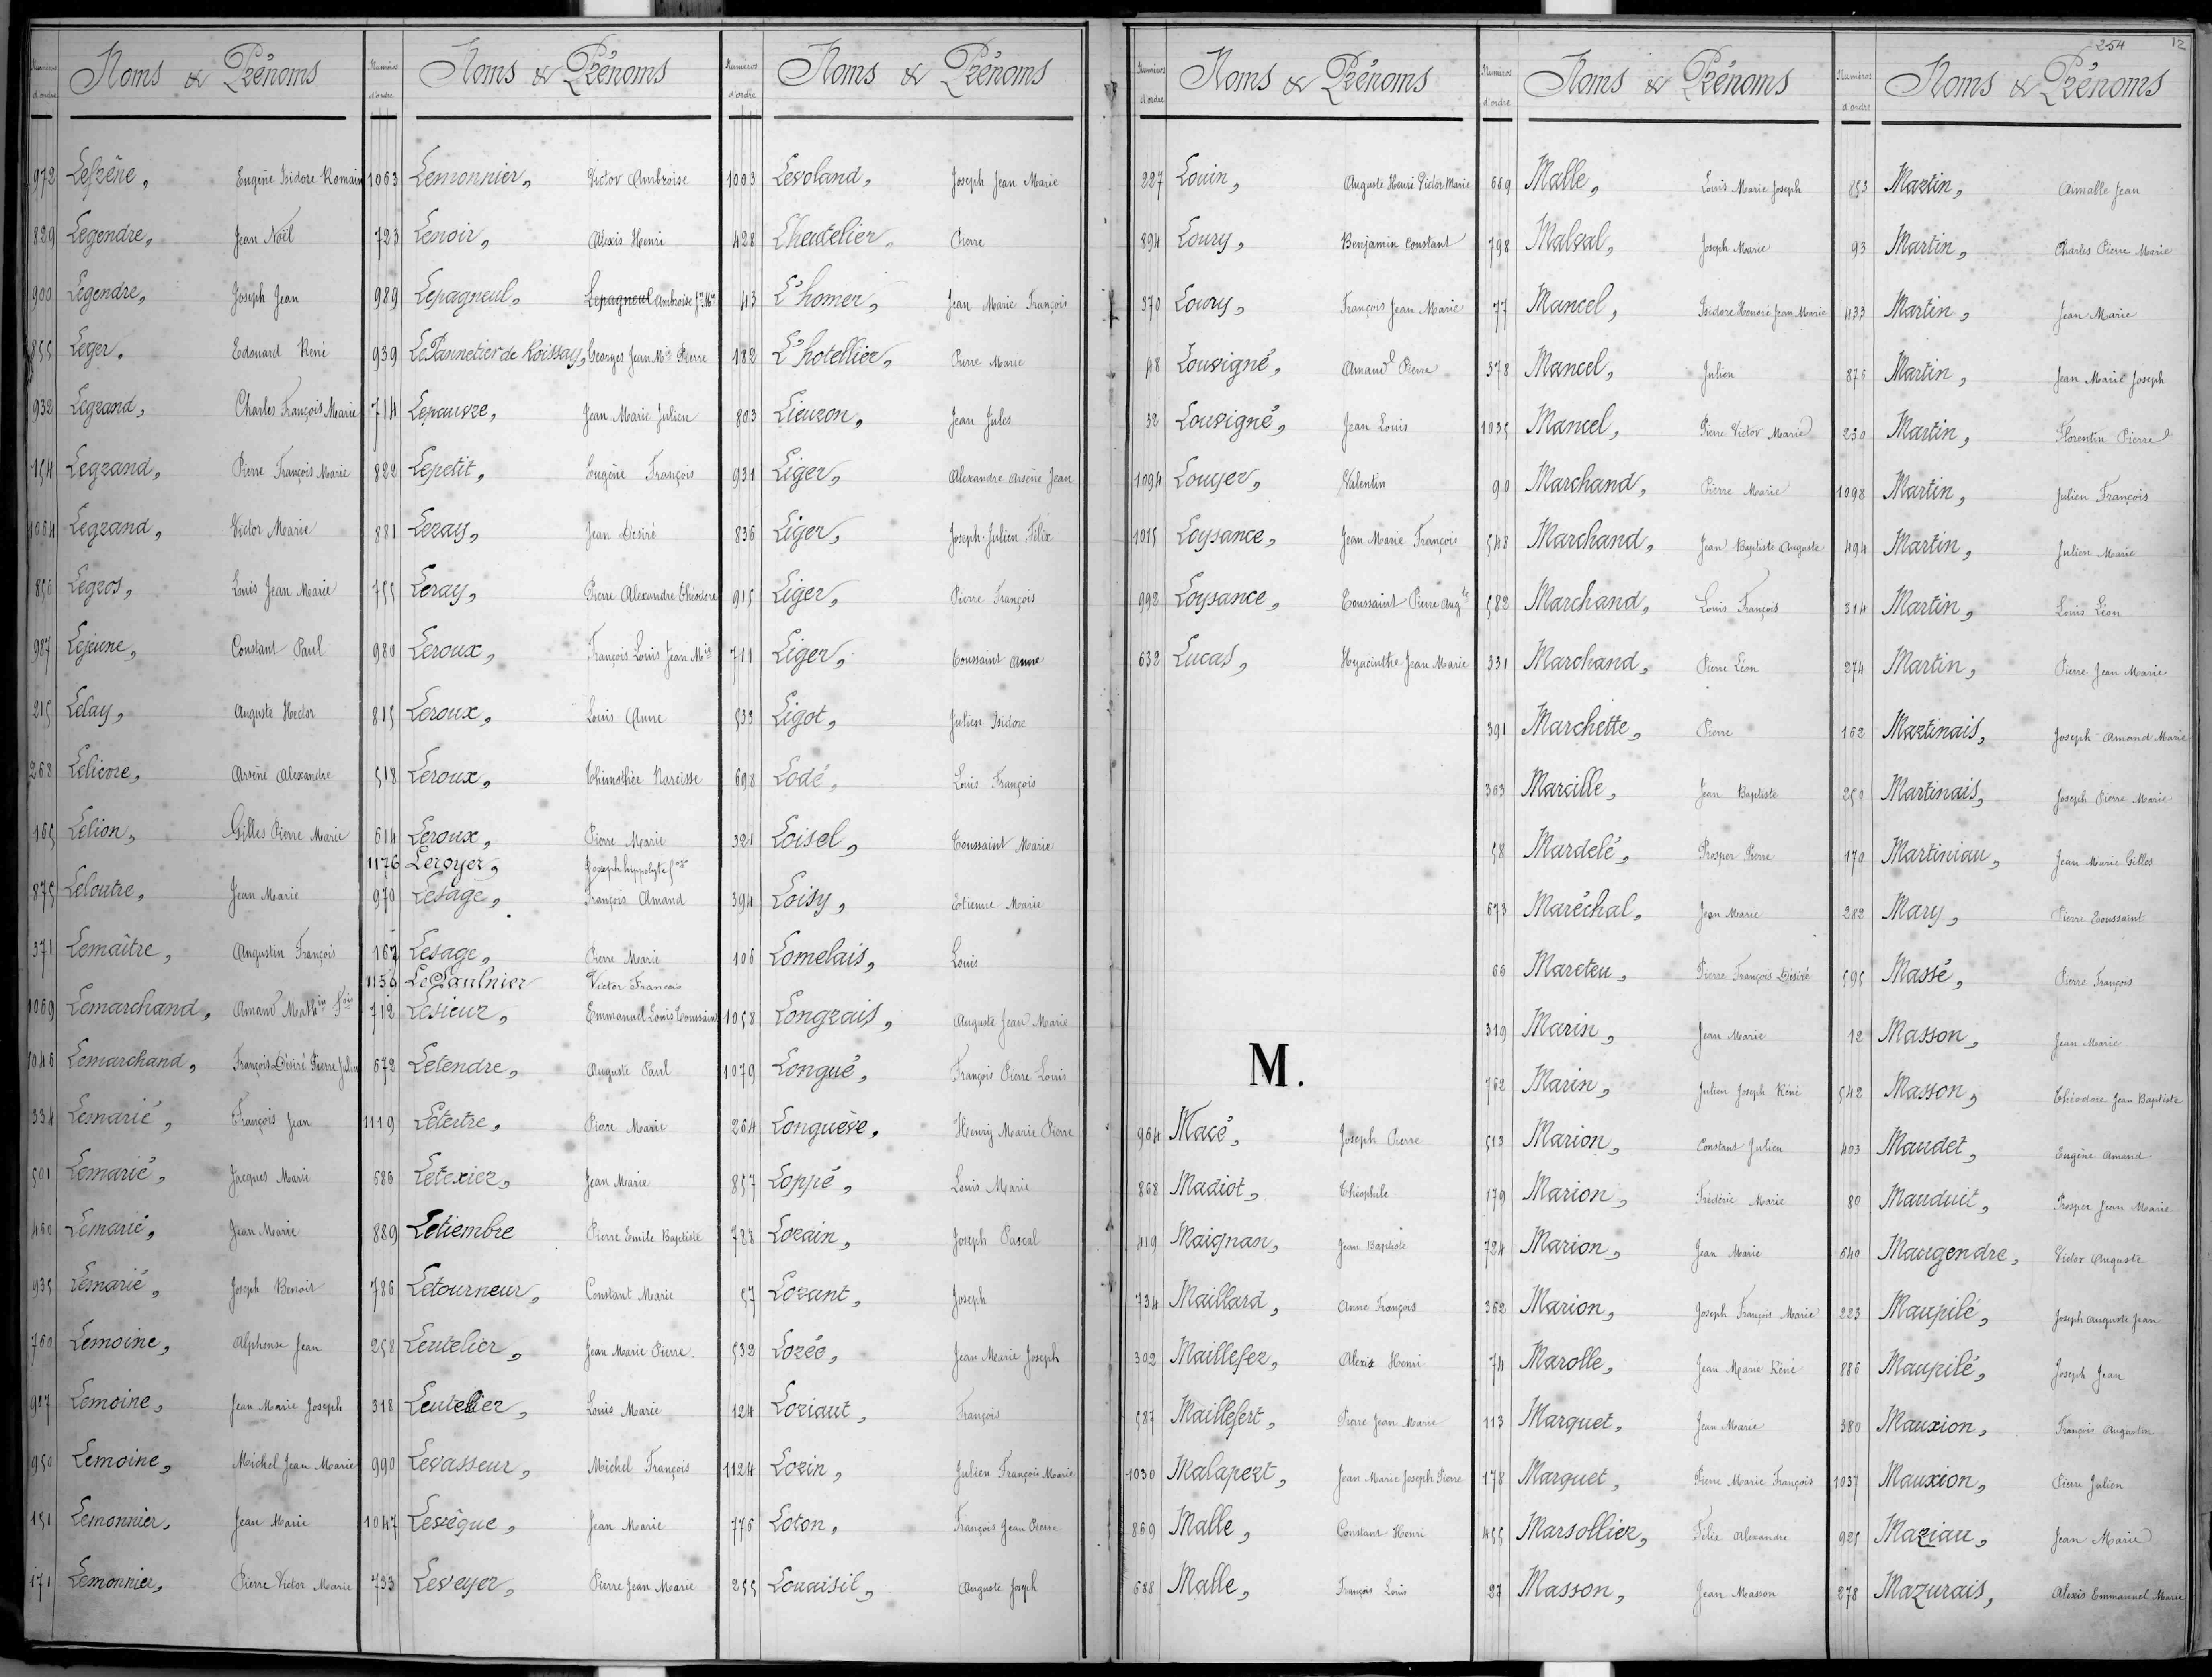 Numéros d'ordre Noms & Prénoms
972 Lefrêne, Eugène Isidore Romain
829 Legendre, Jean Noël
900 Legendre, Joseph Jean
855 Leger, Edouard René
932 Legrand, Charles François Marie
154 Legrand, Pierre François Marie
1064 Legrand, Victor Marie
856 Legros, Louis Jean Marie
987 Lejeune, Constant Paul
215 Lelay, Auguste Hector
268 Lelievre, Arsène Alexandre
165 Lelion, Gilles Pierre Marie
875 Leloutre, Jean Marie
371 Lemaître, Augustin François
1069 Lemarchand, Amand Mathin Fois
1046 Lemarchand, François Désiré Pierre Julien
334 Lemarié, François Jean
501 Lemarié, Jacques Marie
460 Lemarié, Jean Marie
935 Lemarié, Joseph Benoit
760 Lemoine, Alphonse Jean
907 Lemoine, Jean Marie Joseph
950 Lemoine, Michel Jean Marie
151 Lemonnier, Jean Marie
171 Lemonnier, Pierre Victor Marie
Numéros d'ordre Noms & Prénoms
1063 Lemonnier, Victor Ambroise
723 Lenoir, Alexis Henri
989 Lepagneul, Lepagneul Ambroise Jn Mie
939 Le Pannetier de Roissay, Georges Jean Mie Pierre
714 Lepauvre, Jean Marie Julien
822 Lepetit, Eugène François
881 Leray, Jean Désiré
755 Leray, Pierre Alexandre Théodore
980 Leroux, François Louis Jean Mie
815 Leroux, Louis Anne
518 Leroux, Thimothée Narcisse
614 Leroux, Pierre Marie
1176 Leroyer, Joseph hippolyte
970 Lesage, François Amand
167 Lesage, Pierre Marie
1156 Le Saulnier Victor Francois
712 Lesieur, Emmanuel Louis Toussaint
672 Letendre, Auguste Paul
1119 Letertre, Pierre Marie
686 Letexier, Jean Marie
889 Letiembre Pierre Emile Baptiste
786 Letourneur, Constant Marie
258 Leutelier, Jean Marie Pierre
318 Leutelier, Louis Marie
990 Levasseur, Michel François
1047 Levêque, Jean Marie
793 Leveyer, Pierre Jean Marie
Numéros d'ordre Noms & Prénoms
1003 Levoland, Joseph Jean Marie
428 Lheutelier, Pierre
43 L'homer, Jean Marie François
182 L'hotellier, Pierre Marie
803 Lieuron, Jean Jules
931 Liger, Alexandre Arsène Jean
836 Liger, Joseph Julien Félix
915 Liger, Pierre François
711 Liger, Toussaint Anne
533 Ligot, Julien Isidore
698 Lodé, Louis François
321 Loisel, Toussaint Marie
394 Loisy, Etienne Marie
106 Lomelais, Louis
1058 Longrais, Auguste Jean Marie
1079 Longué, François Pierre Louis
264 Longuève, Henry Marie Pierre
857 Loppé, Louis Marie
788 Lorain, Joseph Pascal
57 Lorant, Joseph
532 Lorée, Jean Marie Joseph
124 Loriaut, François
1124 Lorin, Julien François Marie
776 Loton, François Jean Pierre
255 Louaisil, Auguste Joseph
Numéros d'ordre Noms & Prénoms
227 Louin, Auguste Henri Victor Marie
894 Loury, Benjamin Constant
370 Loury, François Jean Marie
48 Louvigné, Amand Pierre
32 Louvigné, Jean Louis
1094 Louyer, Valentin
1015 Loysance, Jean Marie François
992 Loysance, Toussaint Pierre Augte
632 Lucas, Hyacinthe Jean Marie
M.
964 Macé, Joseph Pierre
868 Madiot, Théophile
419 Maignan, Jean Baptiste
734 Maillard, Anne François
302 Maillefer, Alexis Henri
587 Maillefert, Pierre Jean Marie
1030 Malapert, Jean Marie Joseph Pierre
869 Malle, Constant Henri
688 Malle, François Louis
Numéros d'ordre Noms & Prénoms
669 Malle, Louis Marie Joseph
798 Malval, Joseph Marie
77 Mancel, Isidore Honoré Jean Marie
378 Mancel, Julien
1035 Mancel, Pierre Victor Marie
90 Marchand, Pierre Marie
548 Marchand, Jean Baptiste Auguste
582 Marchand, Louis François
331 Marchand, Pierre Léon
391 Marchette, Pierre
363 Marcille, Jean Baptiste
58 Mardelé, Prosper Pierre
673 Maréchal, Jean Marie
66 Mareteu, Pierre François Désiré
319 Marin, Jean Marie
762 Marin, Julien Joseph René
513 Marion, Constant Julien
179 Marion, Frédéric Marie
724 Marion, Jean Marie
362 Marion, Joseph François Marie
74 Marolle, Jean Marie René
113 Marquet, Jean Marie
178 Marquet, Pierre Marie François
455 Marsollier, Félix Alexandre
27 Masson, Jean Masson
254 12
Numéros d'ordre Noms & Prénoms
853 Martin, Aimable Jean
93 Martin, Charles Pierre Marie
433 Martin, Jean Marie
876 Martin, Jean Marie Joseph
230 Martin, Florentin Pierre
1098 Martin, Julien François
494 Martin, Julien Marie
314 Martin, Louis Léon
274 Martin, Pierre Jean Marie
162 Martinais, Joseph Amand Marie
250 Martinais, Joseph Pierre Marie
170 Martiniau, Jean Marie Gilles
282 Mary, Pierre Toussaint
595 Massé, Pierre François
12 Masson, Jean Marie
542 Masson, Théodore Jean Baptiste
403 Maudet, Eugène Amand
80 Mauduit, Prosper Jean Marie
640 Maugendre, Victor Auguste
223 Maupilé, Joseph Auguste Jean
886 Maupilé, Joseph Jean
380 Mauxion, François Augustin
1037 Mauxion, Pierre Julien
925 Maziau, Jean Marie
278 Mazurais, Alexis Emmanuel Marie